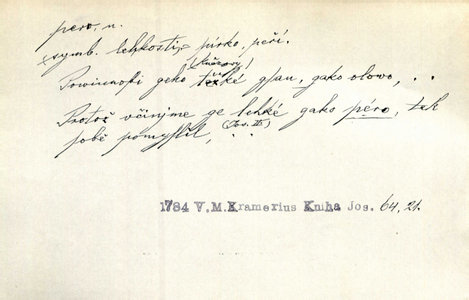 pero, n.
symb. lehkosti, = pírko, peří.
Powinnosti geho těžké gsau, gako olowo, . .
Protož včiňme ge lehké gako péro, tak
(Jos. II)
sobě pomyslil, . .
1784 V.M.Kramerius Kniha Jos. 64, 21.